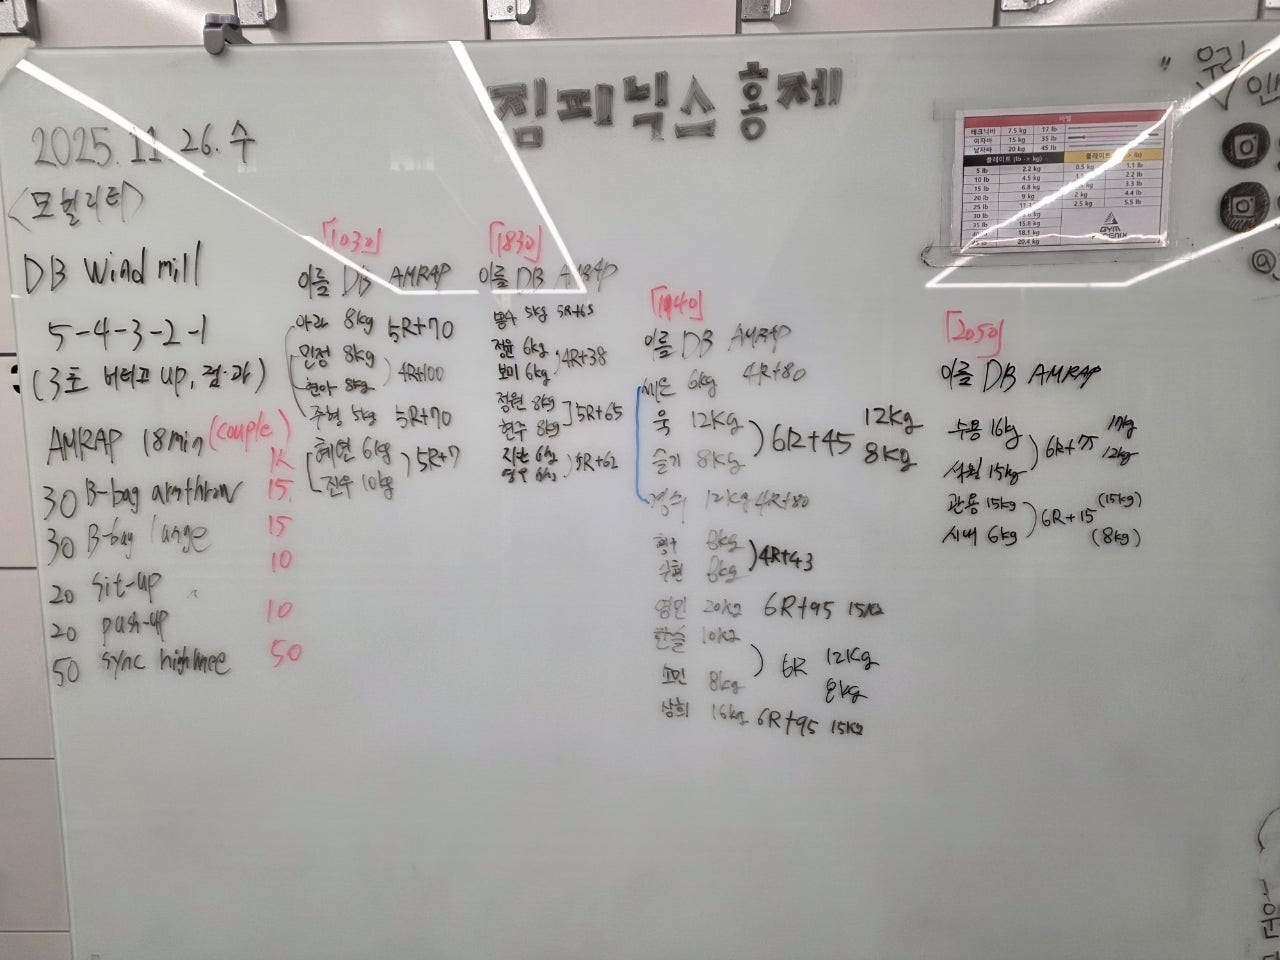 짐피닉스홍제
2025. 11. 26. 수
<모빌리티>
DB Wind mill
5-4-3-2-1
(3초 버티고 up, 점·과)
AMRAP 18min (couple)
30 B-bag armthrow 15
30 B-bag lunge 15
20 sit-up 10
20 push-up 10
50 sync highknee 50
[1030]
이름 DB AMRAP
아라 8kg 5R+70
민정 8kg
현아 8kg
4R+100
주형 5kg 5R+70
혜연 6kg
진우 10kg
5R+7
[1830]
이름 DB AMRAP
봉수 5kg 5R+65
정윤 6kg
보미 6kg
4R+38
정원 8kg
현수 8kg
5R+65
6kg
6kg
5R+62
[1940]
이름 DB AMRAP
세은 6kg 4R+80
욱 12kg
슬기 8kg
6R+45
12kg
8kg
경수 12kg 4R+80
형수 8kg
수현 8kg
4R+43
영민 20kg 6R+95 15kg
한슬 10kg
소민 8kg
6R
12kg
8kg
상희 16kg 6R+95 15kg
[2050]
이름 DB AMRAP
수용 16kg
석원 15kg
6R+75
12kg
관용 15kg
시내 6kg
6R+15
(15kg)
(8kg)
바벨
테크닉바 7.5 kg 17 lb
여자바 15 kg 35 lb
남자바 20 kg 45 lb
플레이트 (lb -> kg)
5 lb 2.2 kg 0.5 kg 1.1 lb
10 lb 4.5 kg 2.2 lb
15 lb 6.8 kg 3.3 lb
20 lb 9 kg 2 kg 4.4 lb
25 lb 2.5 kg 5.5 lb
30 lb
35 lb 15.8 kg
18.1 kg
20.4 kg
GYM PHOENIX
" 우리